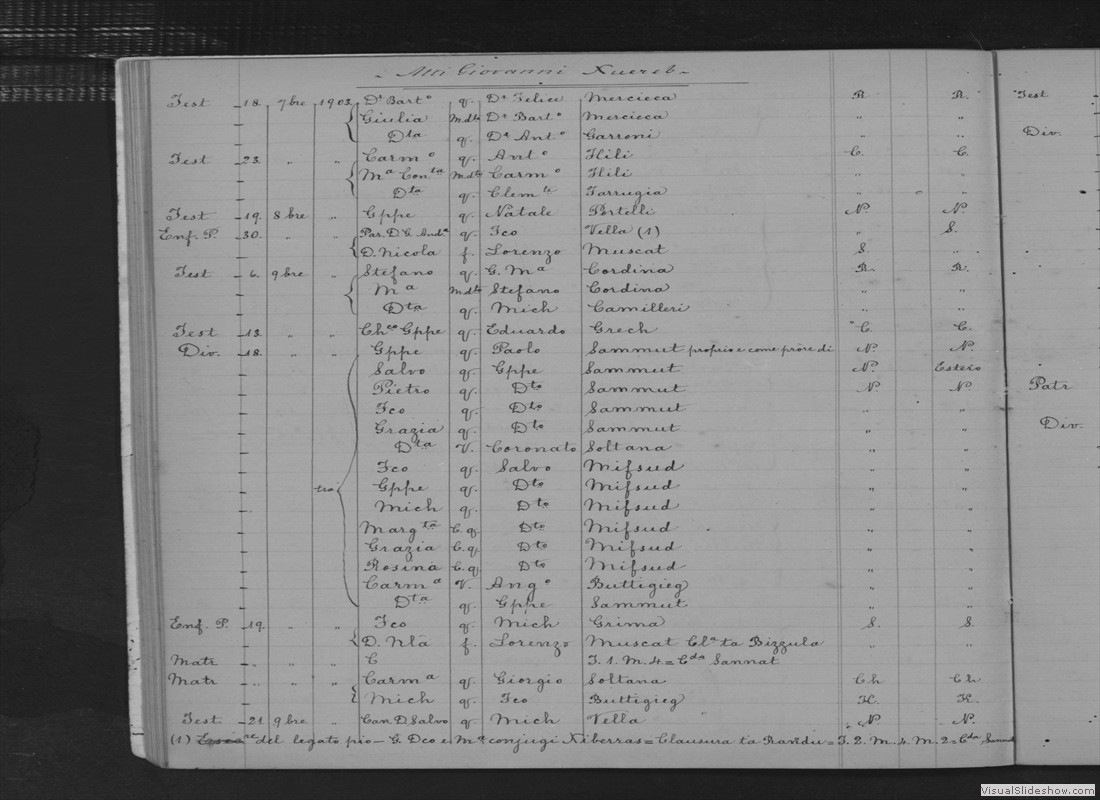 Atti Giovanni Xuereb
Test 18. 7bre 1903 Dr Barto q. Dr Felice Mercieca R. R. Test
Giulia Mdta Dr Barto Mercieca " "
Dta q. Dr Anto Garroni " " Div.
Test 23. " " Carmo q. Anto Hili C. C.
Ma Conta Mdta Carmo Hili " "
Dta q. Clemte Farrugia " "
Test 19. 8bre " Gppe q. Natale Portelli N. N.
Enf. P. 30. " " Par. D. G. Andra q. Fco Vella (1) " S.
D. Nicola f. Lorenzo Muscat S. "
Test 6. 9bre " Stefano q. G. Ma Cordina R. R.
Ma Mdta Stefano Cordina " "
Dta q. Mich Camilleri " "
Test 13. " " Chco Gppe q. Eduardo Grech C. C.
Div. 18. " " Gppe q. Paolo Sammut proprio e come prore di N. N.
Salvo q. Gppe Sammut N. Estero
Pietro q. Dto Sammut N. N. Patr
Fco q. Dto Sammut " "
Grazia q. Dto Sammut " " Div.
Dta V. Coronato Soltana " "
Fco q. Salvo Mifsud " "
tra Gppe q. Dto Mifsud " "
Mich q. Dto Mifsud " "
Margta C. q. Dto Mifsud " "
Grazia C. q. Dto Mifsud " "
Rosina C. q. Dto Mifsud " "
Carma V. Ango Buttigieg " "
Dta q. Gppe Sammut " "
Enf. P. 19. " " Fco q. Mich Grima S. S.
D. Nla f. Lorenzo Muscat Cla ta Bizzula " "
Matr " " " C T. 1. M. 4 = Cda Sannat
Matr " " " Carma q. Giorgio Soltana Ch Ch
Mich q. Fco Buttigieg K. K.
Test 21 9bre " Can. D. Salvo q. Mich Vella N. N.
(1) del legato pio – G. Dco e Ma conjugi Xiberras = Clausura ta Ravdu = T. 2. M. 4. M. 2 = Cda Sannat
VisualSlideshow.com